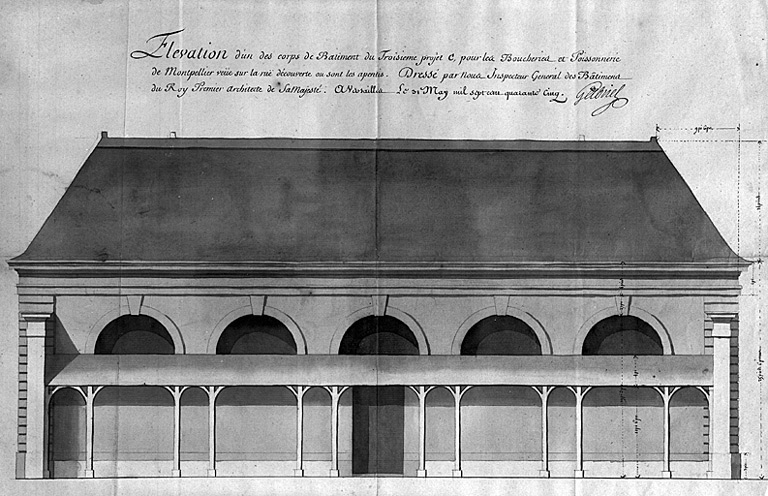 Elevation d'un des corps de Batiment du Troisieme projet C, pour les Boucheries et Poissonnerie
de Montpellier veüe sur la rüe découverte ou sont les apentis. Dressé par nous Inspecteur General des Bâtimens
du Roy Premier Architecte de Sa Majesté. A Versailles Le 31 May mil sept cent quarante Cinq. Gabriel